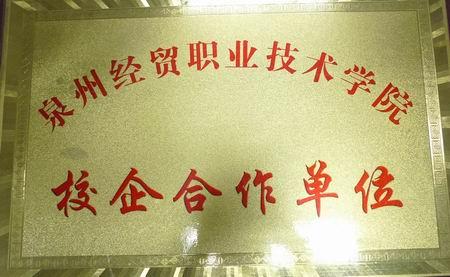 泉州经贸职业技术学院
校企合作单位